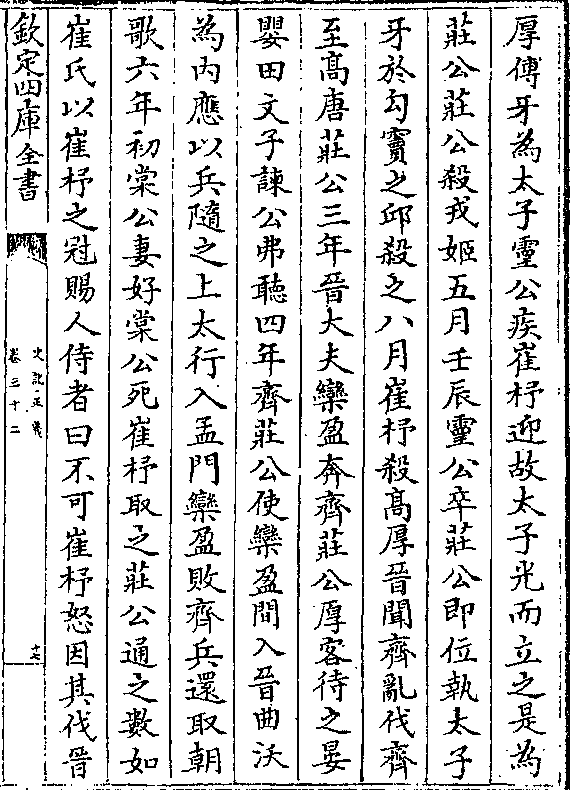 厚傅牙為太子靈公疾崔杼迎故太子光而立之是為
莊公莊公殺戎姬五月壬辰靈公卒莊公即位執太子
牙於勾竇之邱殺之八月崔杼殺髙厚晉聞齊亂伐齊
至髙唐莊公三年晉大夫欒盈奔齊莊公厚客待之晏
嬰田文子諫公弗聽四年齊莊公使欒盈間入晉曲沃
為内應以兵隨之上太行入孟門欒盈敗齊兵還取朝
歌六年初棠公妻好棠公死崔杼取之莊公通之數如
崔氏以崔杼之冠賜人侍者曰不可崔杼怒因其伐晉
欽定四庫全書
史記正義
卷三十二
十七